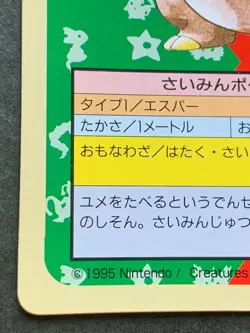 さいみんポケ
タイプ1/エスパー
たかさ/1メートル お
おもなわざ/はたく・さい
ユメをたべるというでんせ
のしそん。さいみんじゅつ
© 1995 Nintendo / Creatures